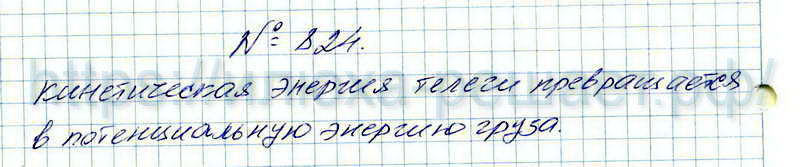 № 824.
кинетическая энергия телеги превращается
в потенциальную энергию груза.